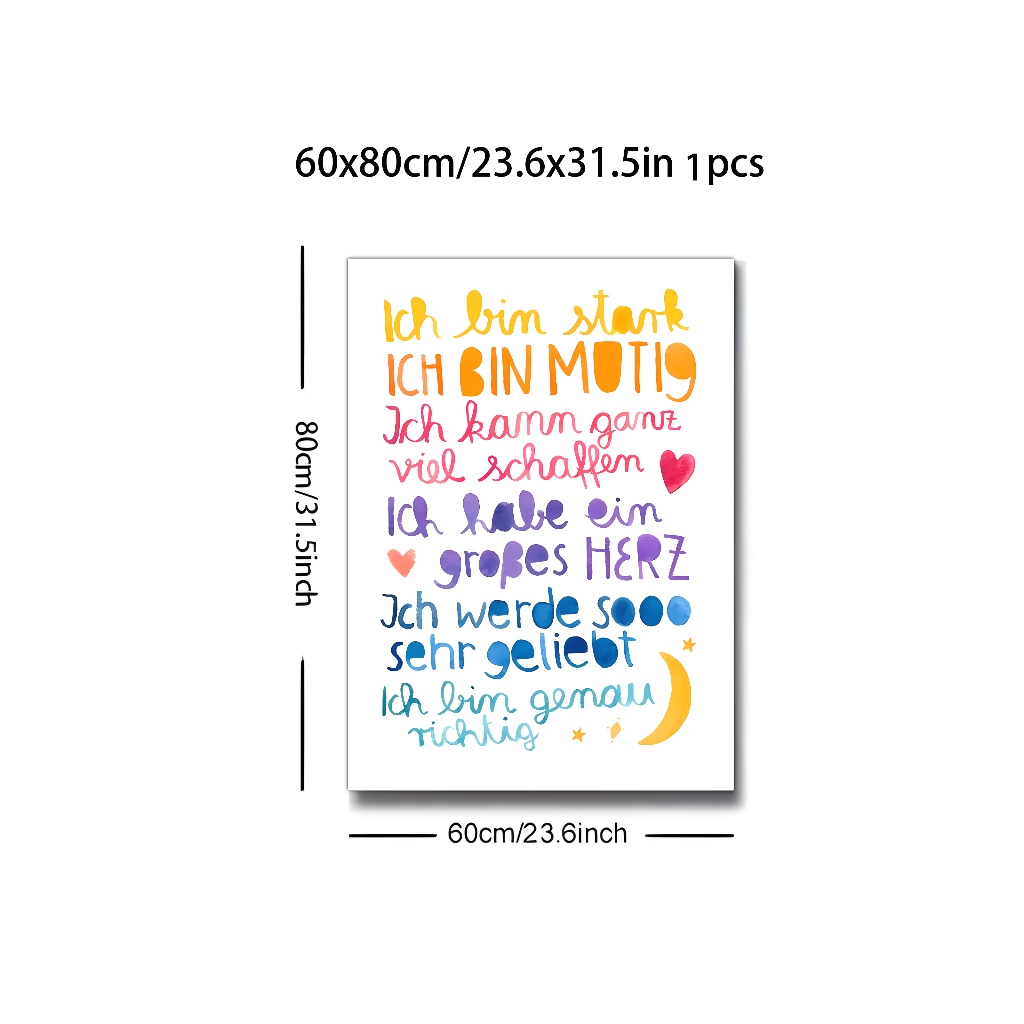 60x80cm/23.6x31.5in 1pcs
80cm/31.5inch
Ich bin stark
ICH BIN MUTIg
Ich kann ganz
viel schaffen
Ich habe ein
großes HERZ
Ich werde sooo
sehr geliebt
Ich bin genau
richtig
60cm/23.6inch